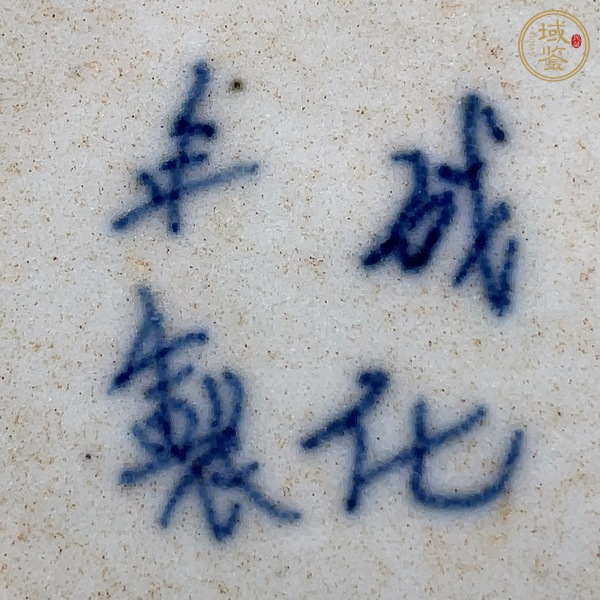 成化
年製
域鉴